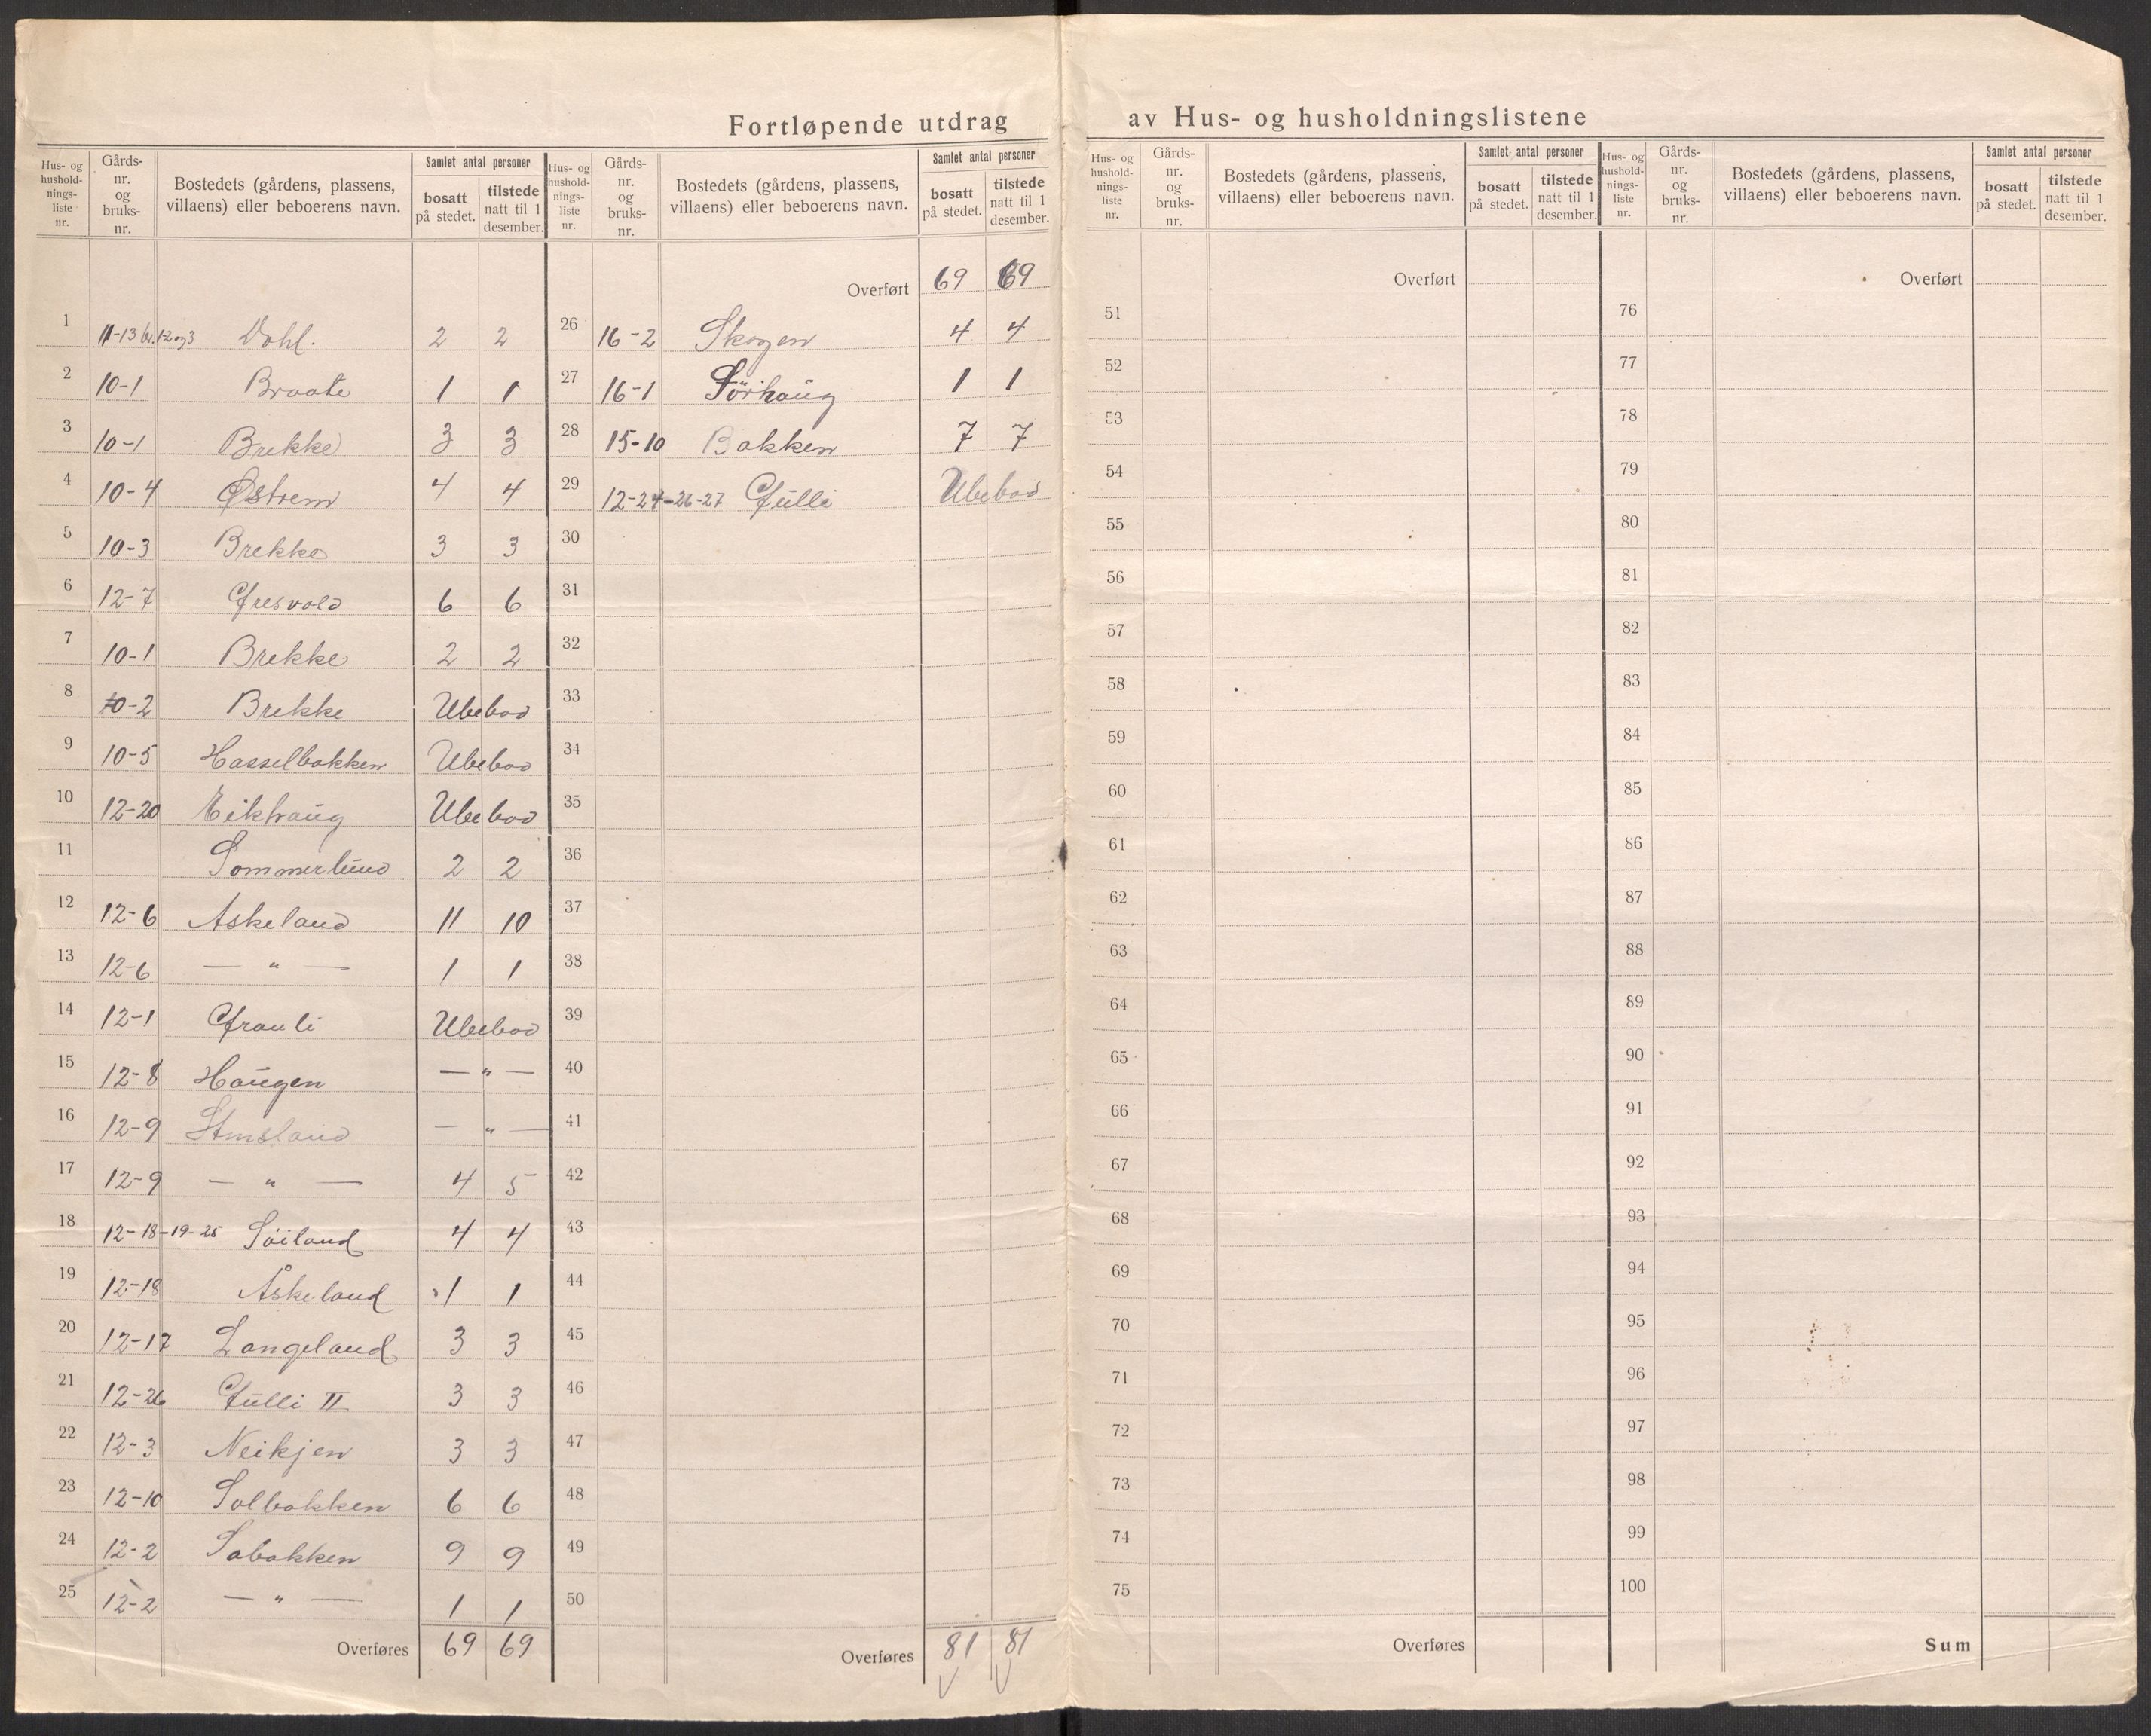 Fortløpende utdrag av Hus- og husholdningslistene
Hus- og hushold-nings-liste nr. Gårds-nr. og bruks-nr. Bostedets (gårdens, plassens, villaens) eller beboerens navn. Samlet antal personer bosatt på stedet. tilstede natt til 1 desember.
1 11-13 br. 1-2 og 3 Dahl. 2 2
2 10-1 Braate 1 1
3 10-1 Brekke 3 3
4 10-4 Østrem 4 4
5 10-3 Brekke 3 3
6 12-7 Gresvold 6 6
7 10-1 Brekke 2 2
8 10-2 Brekke Ubebod
9 10-5 Hasselbakken Ubebod
10 12-20 Eikhaug Ubebod
11 Sommerlund 2 2
12 12-6 Askeland 11 10
13 12-6 — " — 1 1
14 12-1 Granli Ubebod
15 12-8 Haugen — " —
16 12-9 — " —
17 12-9 — " — 4 5
18 12-18-19-25 Söiland 4 4
19 12-18 Åskeland 1 1
20 12-17 Langeland 3 3
21 12-26 Gulli II 3 3
22 12-3 Neikjen 3 3
23 12-10 Solbakken 6 6
24 12-2 Sabakken 9 9
25 12-2 — " — 1 1
Overføres 69 69
Hus- og hushold-nings-liste nr. Gårds-nr. og bruks-nr. Bostedets (gårdens, plassens, villaens) eller beboerens navn. Samlet antal personer bosatt på stedet. tilstede natt til 1 desember.
Overført 69 69
26 16-2 Skogen 4 4
27 16-1 Sörhaug 1 1
28 15-10 Bakken 7 7
29 12-24-26-27 Gulli Ubebod
30
31
32
33
34
35
36
37
38
39
40
41
42
43
44
45
46
47
48
49
50
Overføres 81 81
Hus- og hushold-nings-liste nr. Gårds-nr. og bruks-nr. Bostedets (gårdens, plassens, villaens) eller beboerens navn. Samlet antal personer bosatt på stedet. tilstede natt til 1 desember.
Overført
51
52
53
54
55
56
57
58
59
60
61
62
63
64
65
66
67
68
69
70
71
72
73
74
75
Overføres
Hus- og hushold-nings-liste nr. Gårds-nr. og bruks-nr. Bostedets (gårdens, plassens, villaens) eller beboerens navn. Samlet antal personer bosatt på stedet. tilstede natt til 1 desember.
Overført
76
77
78
79
80
81
82
83
84
85
86
87
88
89
90
91
92
93
94
95
96
97
98
99
100
Sum